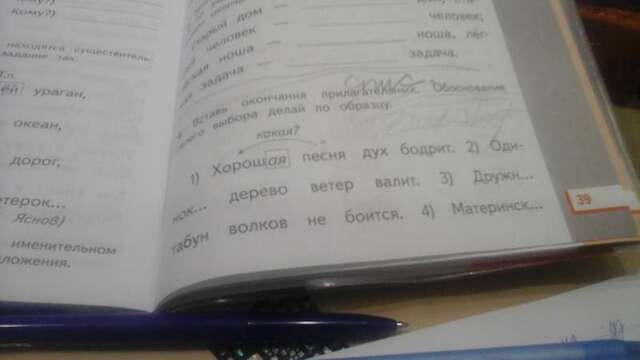 кому?)
кому?)
находятся существитель-
задание так:
Т.п.
ей ураган,
океан,
дорог,
етерок...
Яснов)
именительном
ложения.
старый дом —
человек;
человек —
ноша, лёг-
кая ноша —
задача.
задача —
Вставь окончания прилагательных. Обоснование
выбора делай по образцу.
какая?
1) Хорошая песня дух бодрит. 2) Оди-
нок... дерево ветер валит. 3) Дружн...
табун волков не боится. 4) Материнск...
39